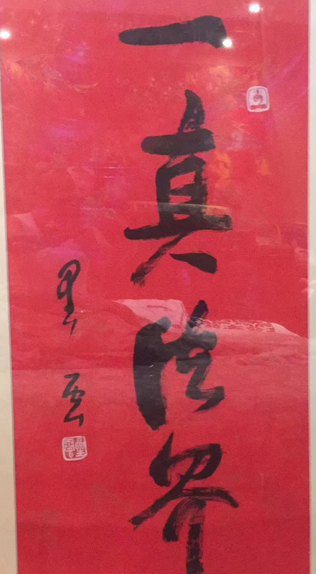 一真法界
星雲